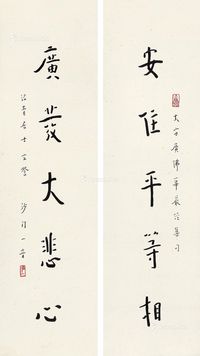 大方廣佛華嚴經集句
安住平等相
廣發大悲心
居士 沙門一音